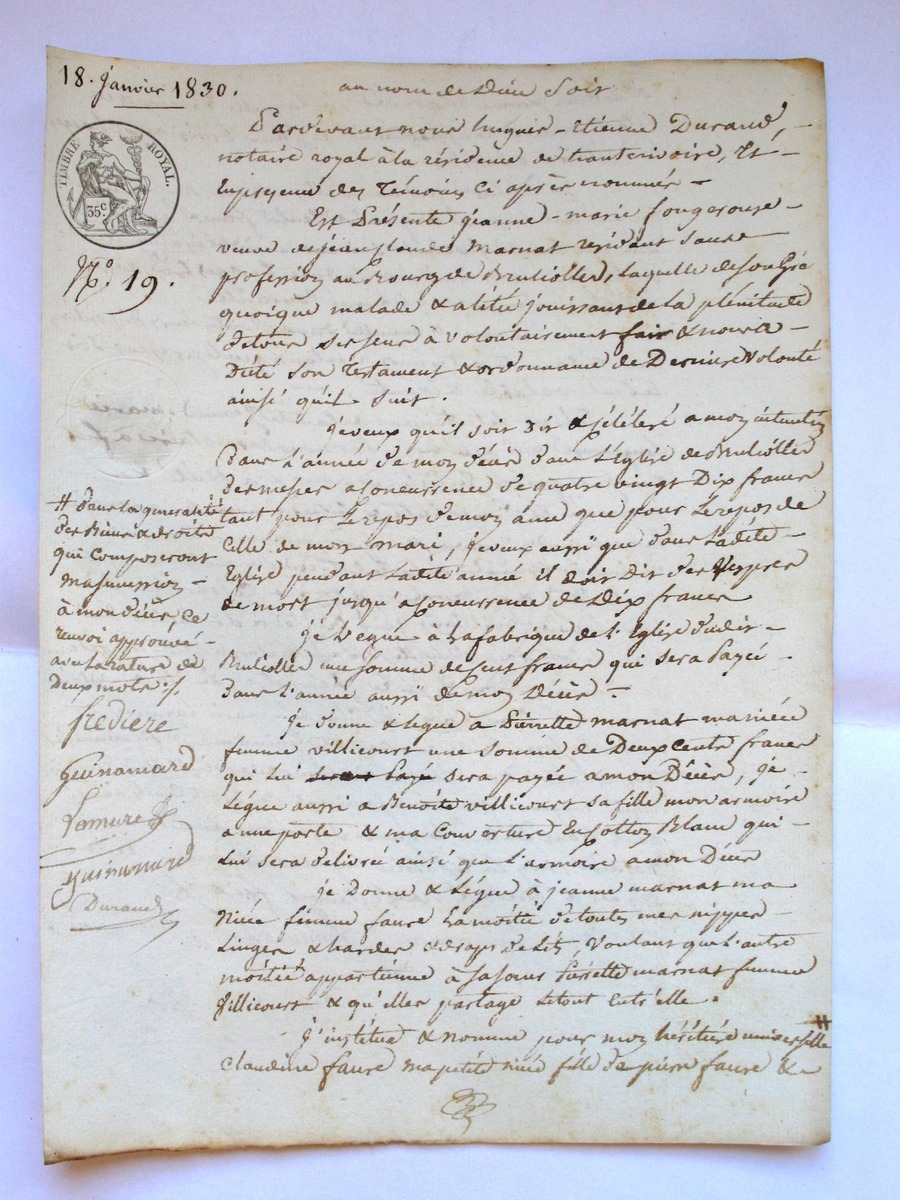 18. Janvier 1830.
au nom de Dieu Soit
TIMBRE ROYAL.
35c
N°. 19.
Pardevant nous hugues-Etienne Durand,
notaire royal à la résidence de hauterivoire, Et
En présence des Témoins Ci après nommés
Est Présente jeanne-marie fougerouse
veuve de jean Claude Marnat residant sans
profession au Bourg de Brullioles, laquelle de son gré
quoique malade & alitée jouissant de la plénitude
de tous ses sens à volontairement fair & nous a
Dicté son Testament & ordonnance de Derniere Volonté
ainsi qu'il Suit.
je veux qu'il soit Dit & célébré a mon intention
Dans l'année de mon décès dans l'Eglise de Brullioles
Des messes a Concurrence de quatre vingt Dix francs
tant pour le repos de mon ame que pour le repos de
Celle de mon mari, je veux aussi que dans ladite
Eglise pendant ladite année il soit Dit des Vespres
de mort jusqu'a Concurrence de Dix francs
je legue à la fabrique de l'Eglise dudit
Brullioles une somme de Cent francs qui sera Payée
Dans l'année aussi de mon Décès
je donne & legue a Pierrette marnat ma niéce
femme villicourt une somme de Deux Cents francs
qui lui sera payée a mon Décès, je
Légue aussi a Benoite villicourt sa fille mon armoire
a une porte & ma Couverture En Cotton Blanc qui
lui sera délivrée ainsi que l'armoire a mon Décès
je Donne & Légue à jeanne marnat ma
Niéce femme faure la moitié de toutes mes nippes
Linges & hardes & draps de Lit, Voulant que l'autre
moitiée appartienne à sa soeur Pierrette marnat femme
Villicourt & qu'elles partage le tout entr'elle.
J'institue & nomme pour mon héritière universelle #
Claudine faure ma petite niéce fille de pierre faure &
# dans la generalité
des Biens & droits
qui Composeront
ma succession
à mon décès, Ce
renvoi approuvé
avec la rature de
Deux mots ./.
fredière
Guinamard
Lamure
Guinamard
Durand